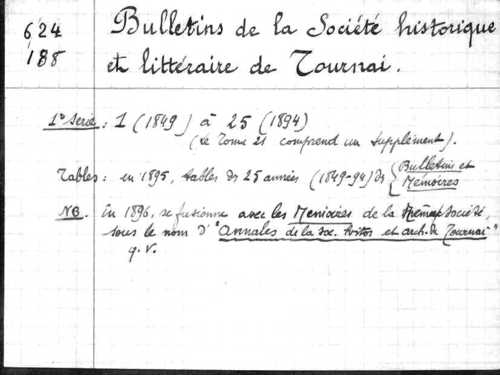 624 Bulletins de la Société historique
188 et littéraire de Tournai.
1e Série : 1 (1849) à 25 (1894)
(le Tome 21 comprend un supplément).
Tables : en 1895, tables des 25 années (1849-94) des { Bulletins et
Mémoires
NB. En 1896, se fusionne avec les Memoires de la même Société,
sous le nom d' "Annales de la soc. histor et arch. de Tournai"
q.v.